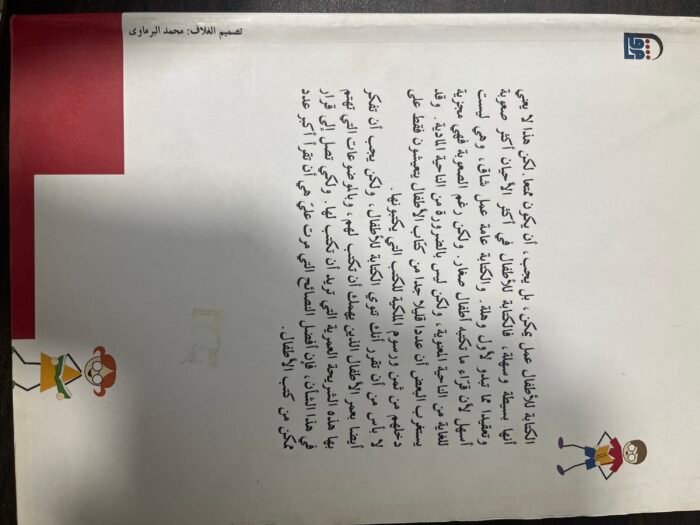 الكتابة للأطفال عمل يمكن، بل يجب، أن يكون ممتعا. لكن هذا لا يعني
أنها بسيطة وسهلة، فالكتابة للأطفال في أكثر الأحيان أكثر صعوبة
وتعقيدا مما تبدو لأول وهلة. والكتابة عامة عمل شاق، وهي ليست
أسهل لأن قرّاء ما نكتبه أطفال صغار. ولكن رغم الصعوبة فهي مجزية
للغاية من الناحية المعنوية، ولكن ليس بالضرورة من الناحية المادية. وقد
يستغرب البعض أن عددا قليلا جدا من كتّاب الأطفال يتعيشون فقط على
دخلهم من ثمن ورسوم الملكية للكتب التي يكتبونها.
لا بأس من أن تقرر أنك تنوي الكتابة للأطفال، ولكن يجب أن تفكر
أيضا بعمر الأطفال الذين يهمك أن تكتب لهم، وبالموضوعات التي تهتم
بها هذه الشريحة العمرية التي تريد أن تكتب لها. ولكي تصل إلى قرار
في هذا الشأن، فإن أفضل النصائح التي مرت عليّ هي أن تقرأ أكبر عدد
ممكن من كتب الأطفال.
تصميم الغلاف: محمد البرماوى